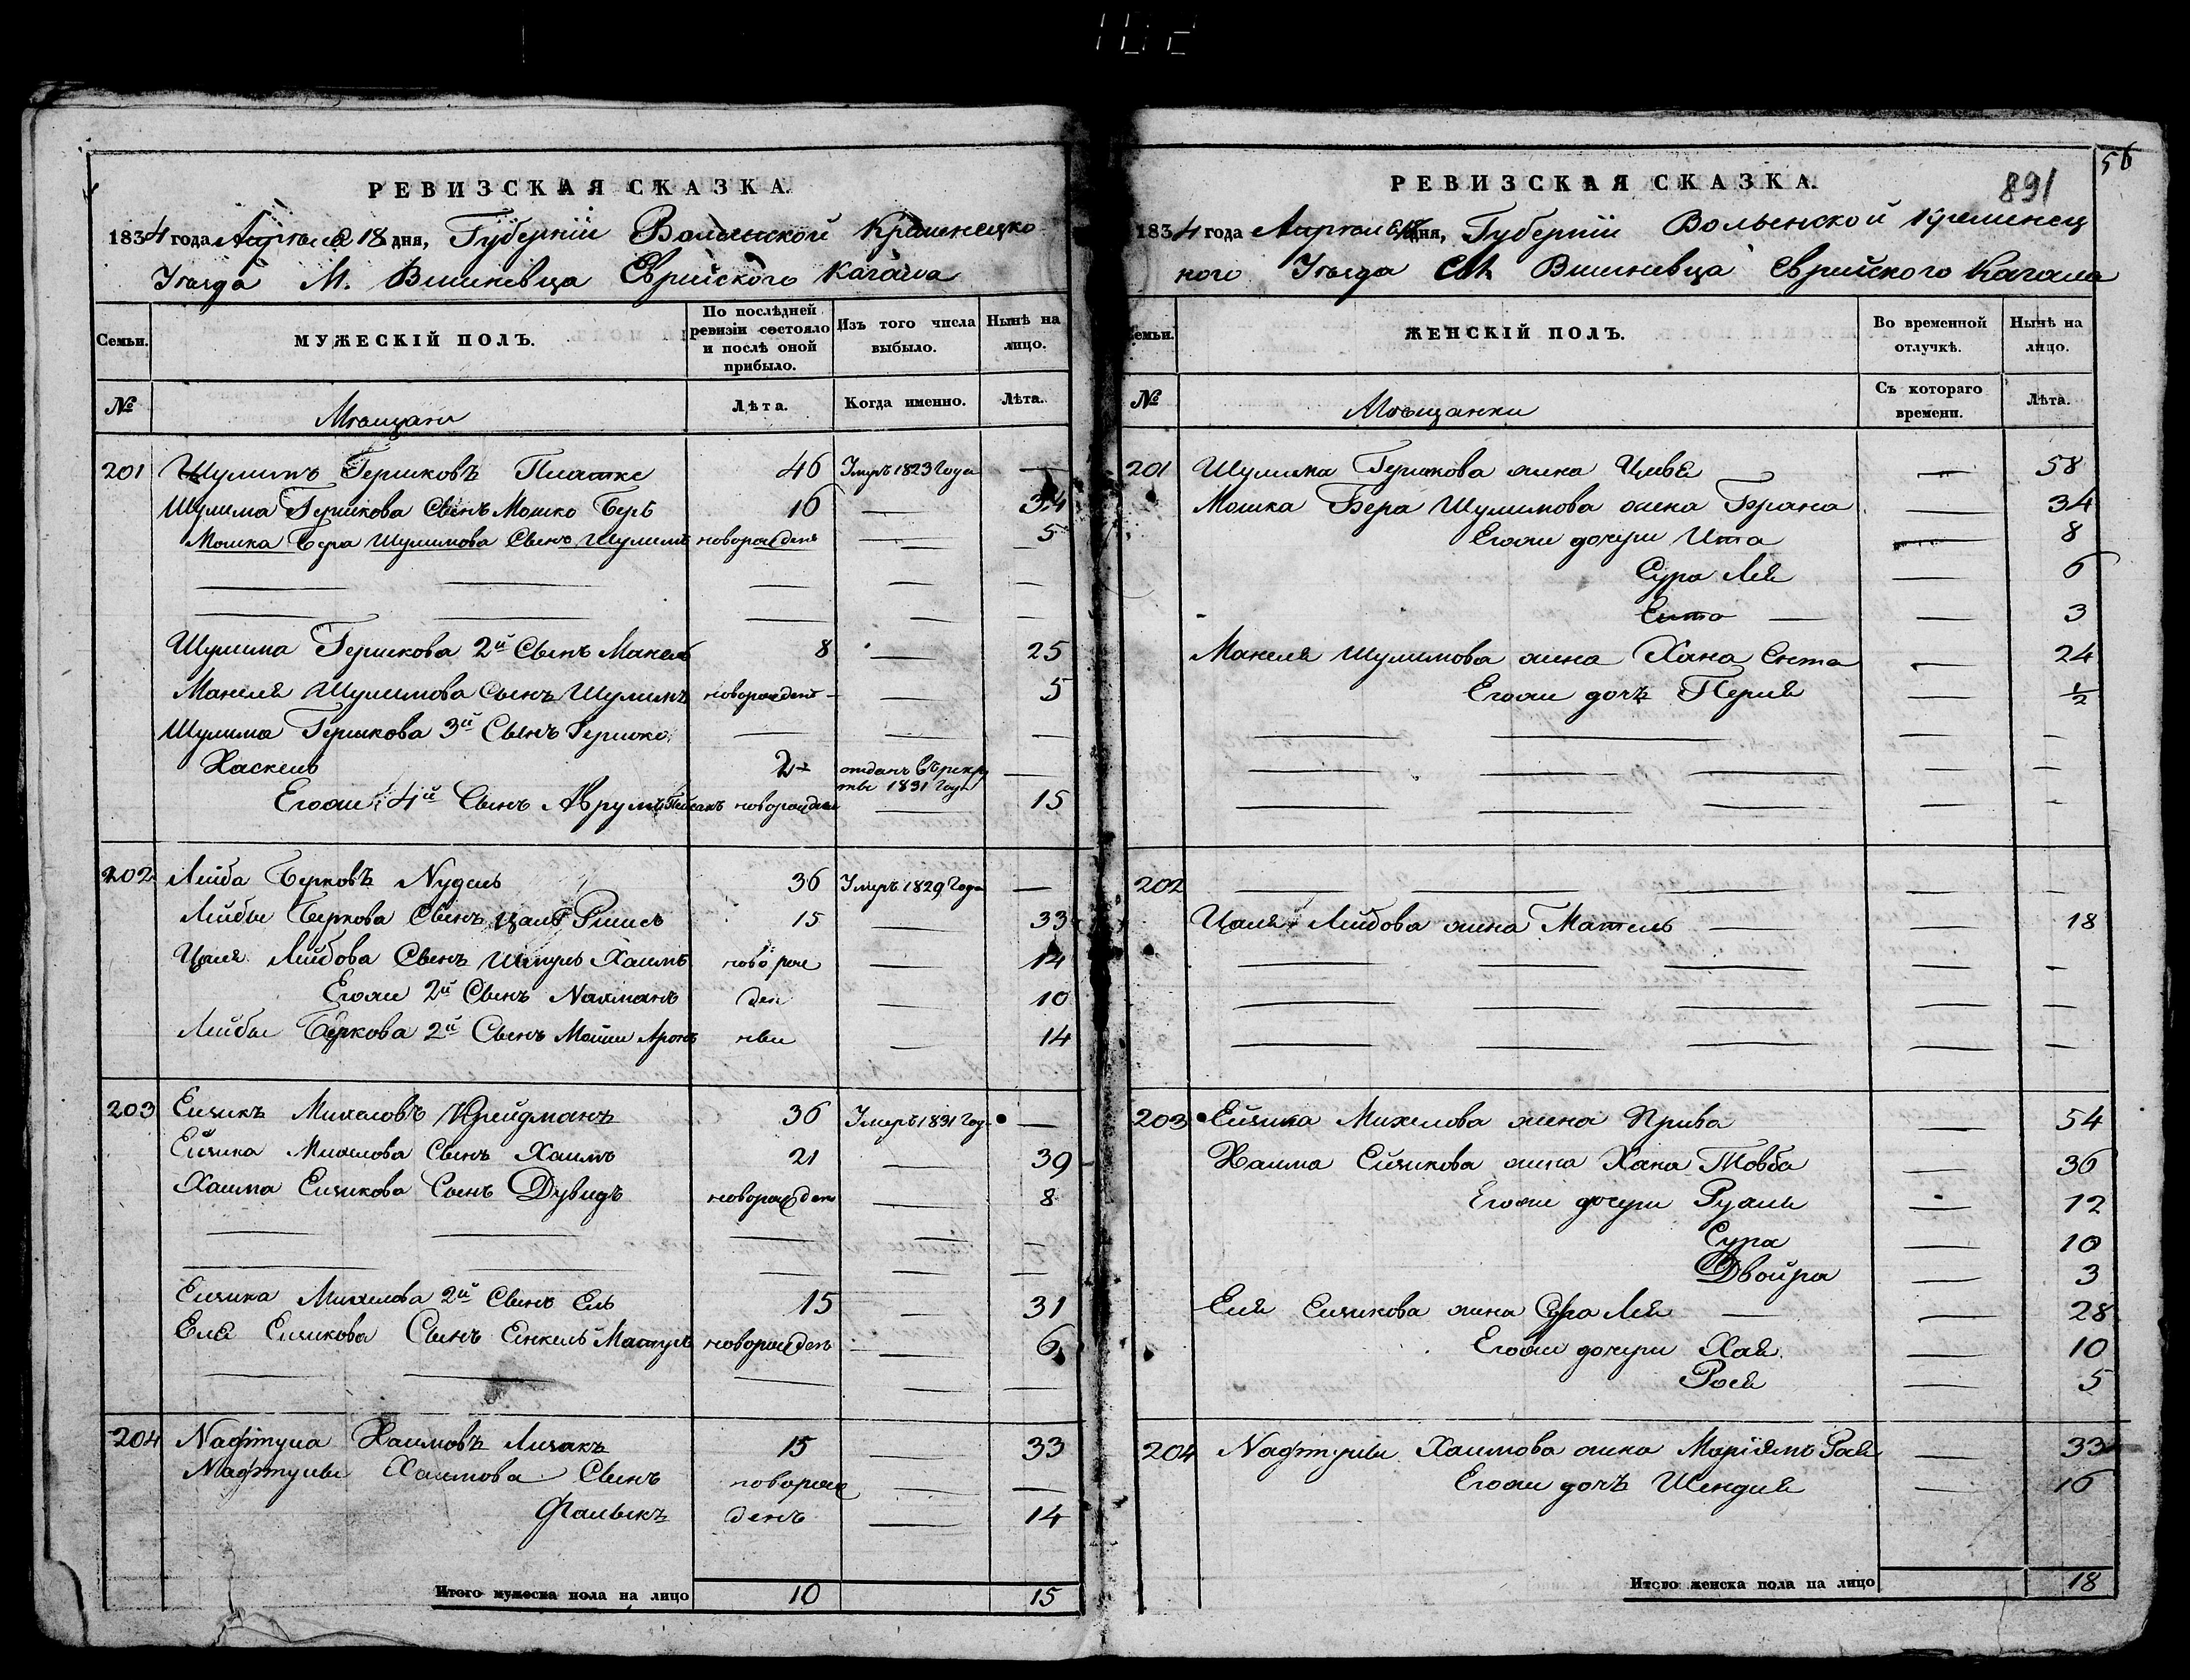 РЕВИЗСКАЯ СКАЗКА.
1834 года Апреля 18 дня, Губерніи Волынской Кременецко
Уезда М. Вишневца Еврейского Кагала
Семьи. МУЖЕСКІЙ ПОЛЪ. По послѣдней ревизіи состояло и послѣ оной прибыло. Изъ того числа выбыло. Нынѣ на лицо.
№ Мещане Лѣта. Когда именно. Лѣта.
201 Шулимъ Гершковъ 46 Умеръ 1823 Года —
Шулима Гершкова Сынъ Мошко Беръ 16 — 34
Мошка Бера Шулимова Сынъ Шулимъ новорожденъ — 5
Шулима Гершкова 2й Сынъ Манель 8 — 25
Манеля Шулимова Сынъ Шулимъ новорожденъ — 5
Шулима Гершкова 3й Сынъ Гершко — — —
Хаскель 2 отданъ въ рекру —
ты 1831 Года
Егожъ 4й Сынъ Аврумъ новорожден — 15
202 Лейба Берковъ Nудель 36 Умеръ 1829 Года —
Лейбы Беркова Сынъ 15 — 33
Цаля Лейбова Сынъ Шмуль Хаимъ новорож — 14
Егоже 2й Сынъ Nахманъ ден — 10
Лейбы Беркова 2й Сынъ Аронъ ныи — 14
203 Ейзикъ Михелевъ Крейдманъ 36 Умеръ 1831 Год —
Ейзика Михелова Сынъ Хаимъ 21 — 39
Хаима Ейзикова Сынъ Дувидъ новорожден — 8
Ейзика Михелова 2й Сынъ Ель 15 — 31
Еля Ейзикова Сынъ новорожден — 6
204 Nафтула Хаимовъ 15 — 33
Nафтулы Хаимова Сынъ новорож — —
Фалыкъ денъ — 14
Итого мужеска пола на лицо 10 15
56
891
РЕВИЗСКАЯ СКАЗКА.
1834 года Апреля дня, Губерніи Волынской Кременец
кого Уезда Вишневца Еврейского Кагала
Семьи. ЖЕНСКІЙ ПОЛЪ. Во временной отлучкѣ. Нынѣ на лицо.
№ Мещанки Съ котораго времени. Лѣта.
201 Шулима Гершкова жена Цивя — 58
Мошка Бера Шулимова жена — 34
Егоже дочери Ита — 8
Сура Лея — 6
— 3
Манеля Шулимова жена Хана — 24
Егоже дочъ Перля — ½
202
Цаля Лейбова жена Матель — 18
203 Ейзика Михелова жена Прива — 54
Хаима Ейзикова жена Хана Товба — 36
Егоже дочери — 12
Сура — 10
Двойра — 3
Еля Ейзикова жена Сура Лея — 28
Егоже дочери Хая — 10
Рося — 5
204 Nафтулы Хаимова жена Маріямъ — 33
Егоже дочъ Шендля — 16
Итого женска пола на лицо 18